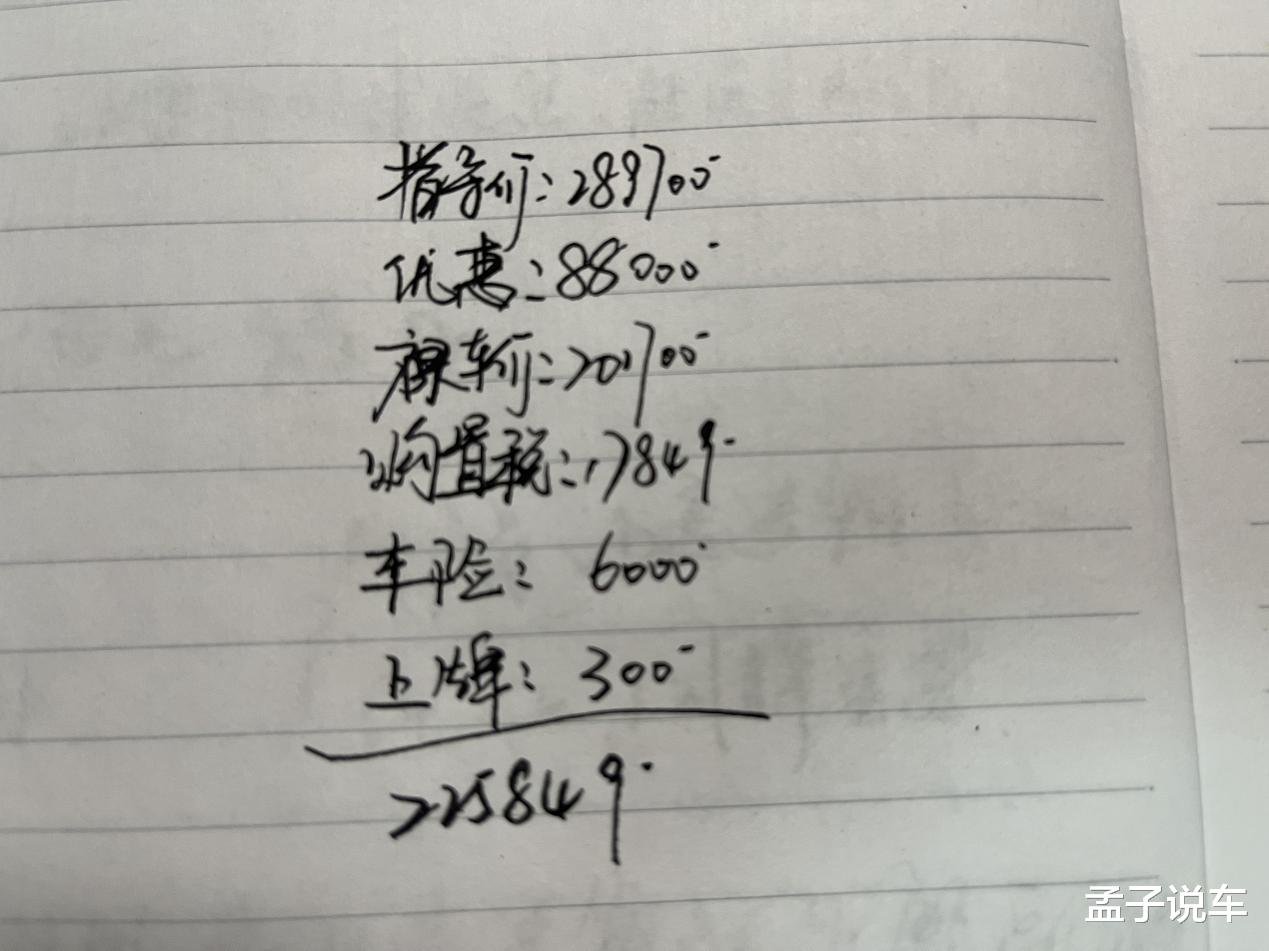 指导价:289700
优惠:88000
裸车价:201700
购置税:17849
车险:6000
上牌:300
225849
孟子说车